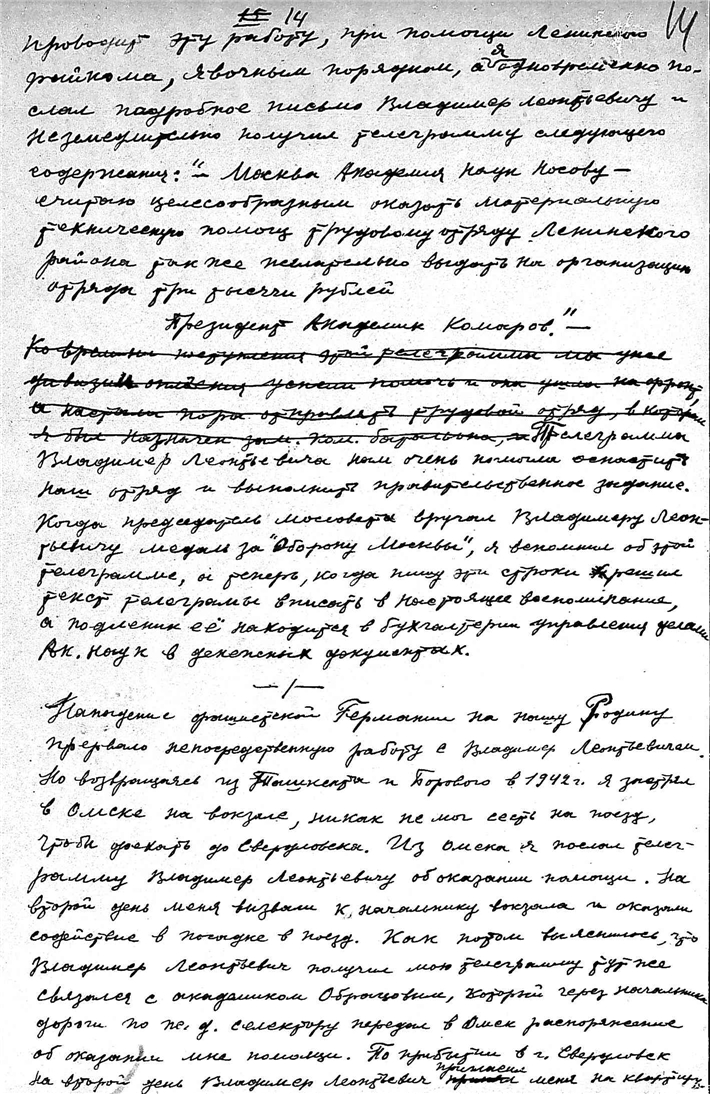 14 14
проводит эту работу, при помощи Ленинского
райкома, явочным порядком, а я одновременно по-
слал падробное письмо Владимер Леонтьевичу и
незамедлительно получил телеграмму следующего
содержания: "— Москва Академия Наук Носову —
считаю целесообразным оказать материальную
техническую помощ трудовому отряду Ленинского
района так же желательно выдать на организацию
отряда три тысячи рублей
Президент Академик Комаров."—
Ко времени поступления этой телеграммы мы уже
дивизии ополчения успели помочь и она ушла на фронт,
и настала пора отправлять трудовой отряд, в котором
я был назначен зам. ком. батальона, и Телеграмма
Владимер Леонтьевича нам очень помогла оснастить
наш отряд и выполнить правительственное задание.
Когда председатель моссовета вручал Владимеру Леон-
тьевичу медаль за "Оборону Москвы", я вспомнил об этой
телеграмме, и теперь, когда пишу эти строки решил
текст телеграмы вписать в настоящее воспоминание,
а подленик её находится в бухгалтерии управления делами
Ак. Наук в денежных документах.
—/—
Нападение фашистской Германии на нашу Родину
прервало непосредственную работу с Владимер Леонтьевичем.
Но возвращаясь из Ташкента и Борового в 1942г. я застрял
в Омске на вокзале, никак не мог сесть на поезд,
чтобы доехать до Свердловска. Из Омска я послал телег-
рамму Владимер Леонтьевичу об оказании помощи. На
второй день меня вызвали к начальнику вокзала и оказали
содействие в посадке в поезд. Как потом выяснилось, что
Владимер Леонтьевич получив мою телеграмму тут же
связался с академиком Образцовым, который через начальника
дороги по ж. д. селектору передал в Омск распоряжение
об оказании мне помощи. По прибытии в г. Свердловск
на второй день Владимер Леонтьевич пригласил меня на квартиру